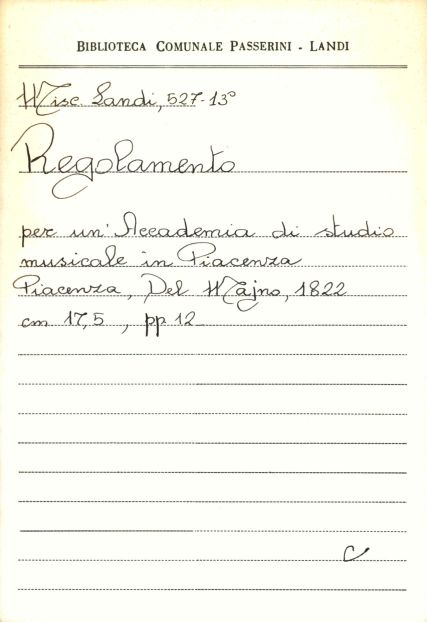 BIBLIOTECA COMUNALE PASSERINI - LANDI
Misc. Landi, 527-13°
Regolamento
per un' Accademia di studio
musicale in Piacenza
Piacenza, Del Majno, 1822
cm 17,5, pp 12
C